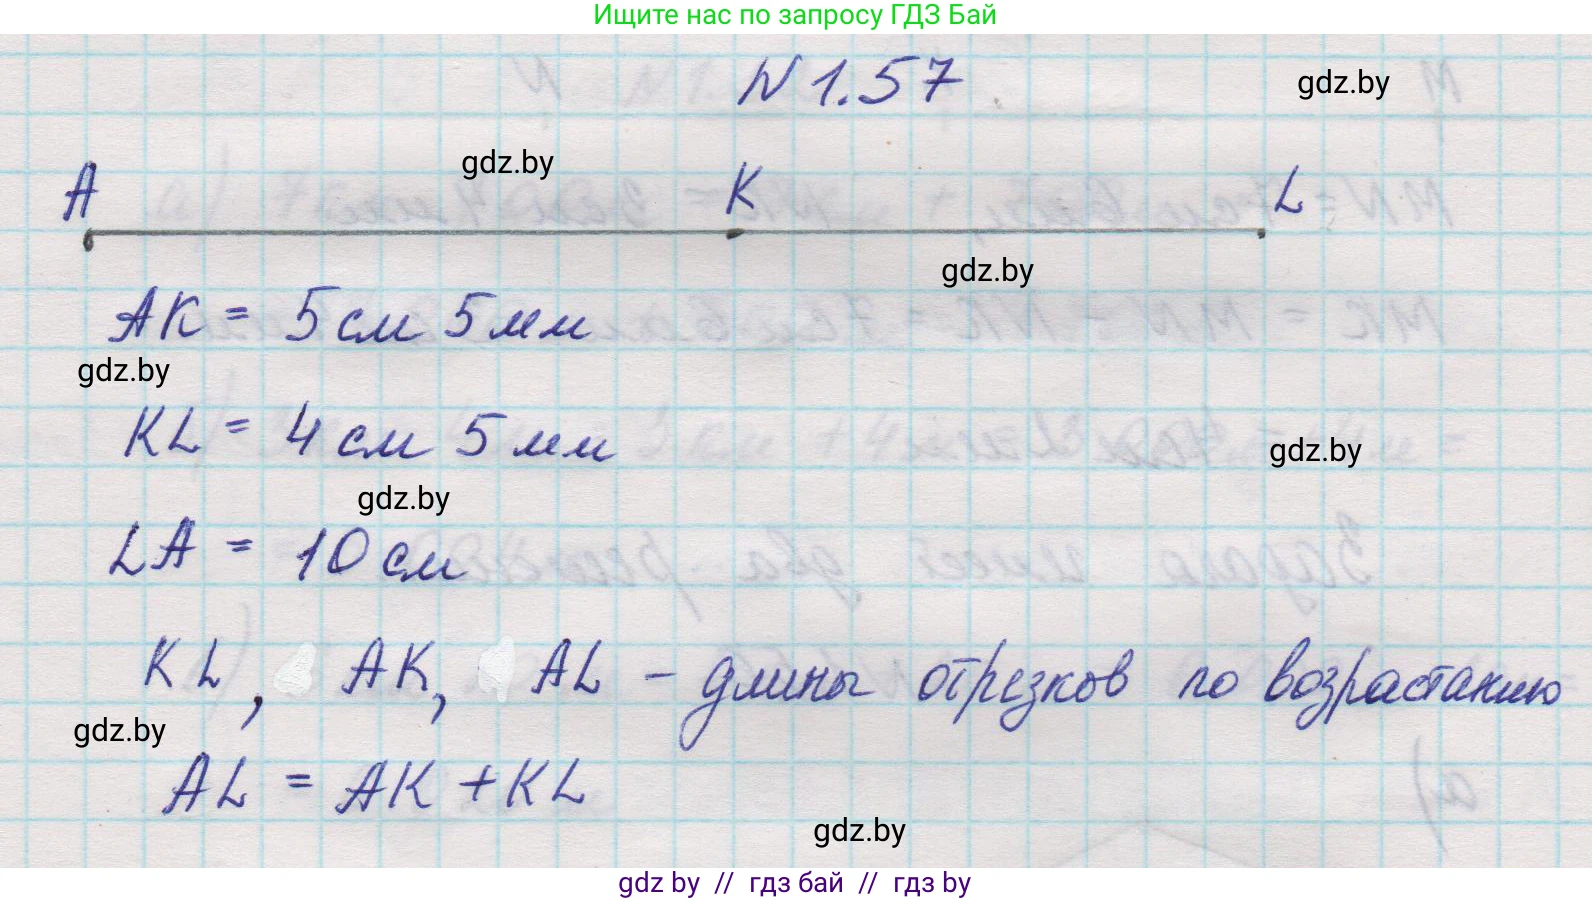 Ищите нас по запросу ГДЗ Бай
N 1.57
gdz.by
gdz.by
A K L
gdz.by
AK = 5 см 5 мм
gdz.by
KL = 4 см 5 мм
gdz.by
gdz.by
LA = 10 см
KL, AK, AL - длины отрезков по возрастанию
gdz.by
AL = AK + KL
gdz.by
gdz by // гдз бай // гдз by